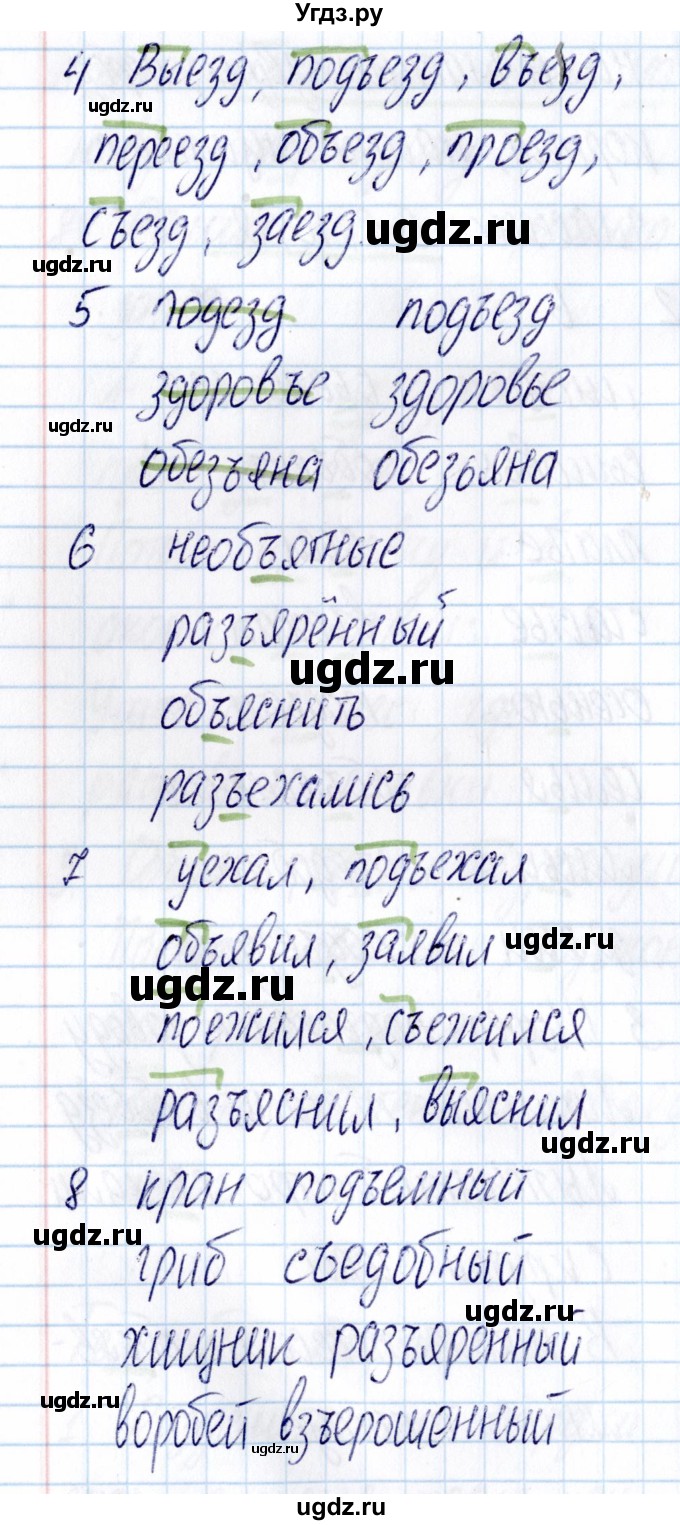 Угдз.ру
4 Выезд, подъезд, въезд,
ugdz.ru
переезд, объезд, проезд,
съезд, заезд.
ugdz.ru
ugdz.ru
5 подезд подъезд
здоровъе здоровье
ugdz.ru
обезъяна обезьяна
6 необъятные
разъярённый
ugdz.ru
объяснить
разъехались
7 уехал, подъехал
объявил, заявил
ugdz.ru
ugdz.ru
поежился, съежился
разъяснил, выяснил
ugdz.ru
8 кран подъемный
ugdz.ru
гриб съедобный
ugdz.ru
хищник разъяренный
ugdz.ru
воробей взъерошенный
ugdz.ru
ugdz.ru